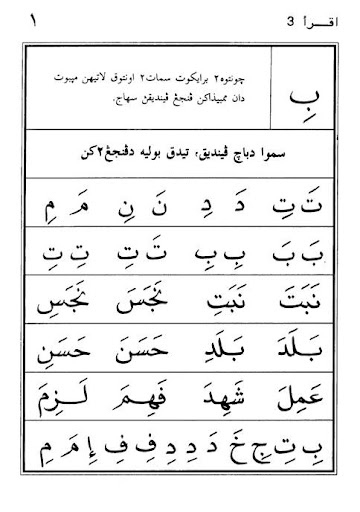 اقـرأ 3
١
بِ
چونتوه٢ برايكوت سمات٢ اونتوق لاتيهن مڽبوت
دان ممبيذاكن ڤنجڠ ڤينديقڽ سهاج.
سموا دباچ ڤينديق، تيدق بوليه دڤنجڠ٢كن
تَ تِ دَ دِ نَ نِ مَ مِ
بَ بَ بِ بِ تَ تِ تِ تِ
نَبَتَ نَبَتِ نَجَسَ نَجَسِ
بَلَدَ بَلَدِ حَسَنَ حَسَنِ
عَمِلَ شَهِدَ فَهِمَ لَزِمَ
بِ تِ جِ خَ دَ دِ دِ فِ فِ إِ مَ مِ